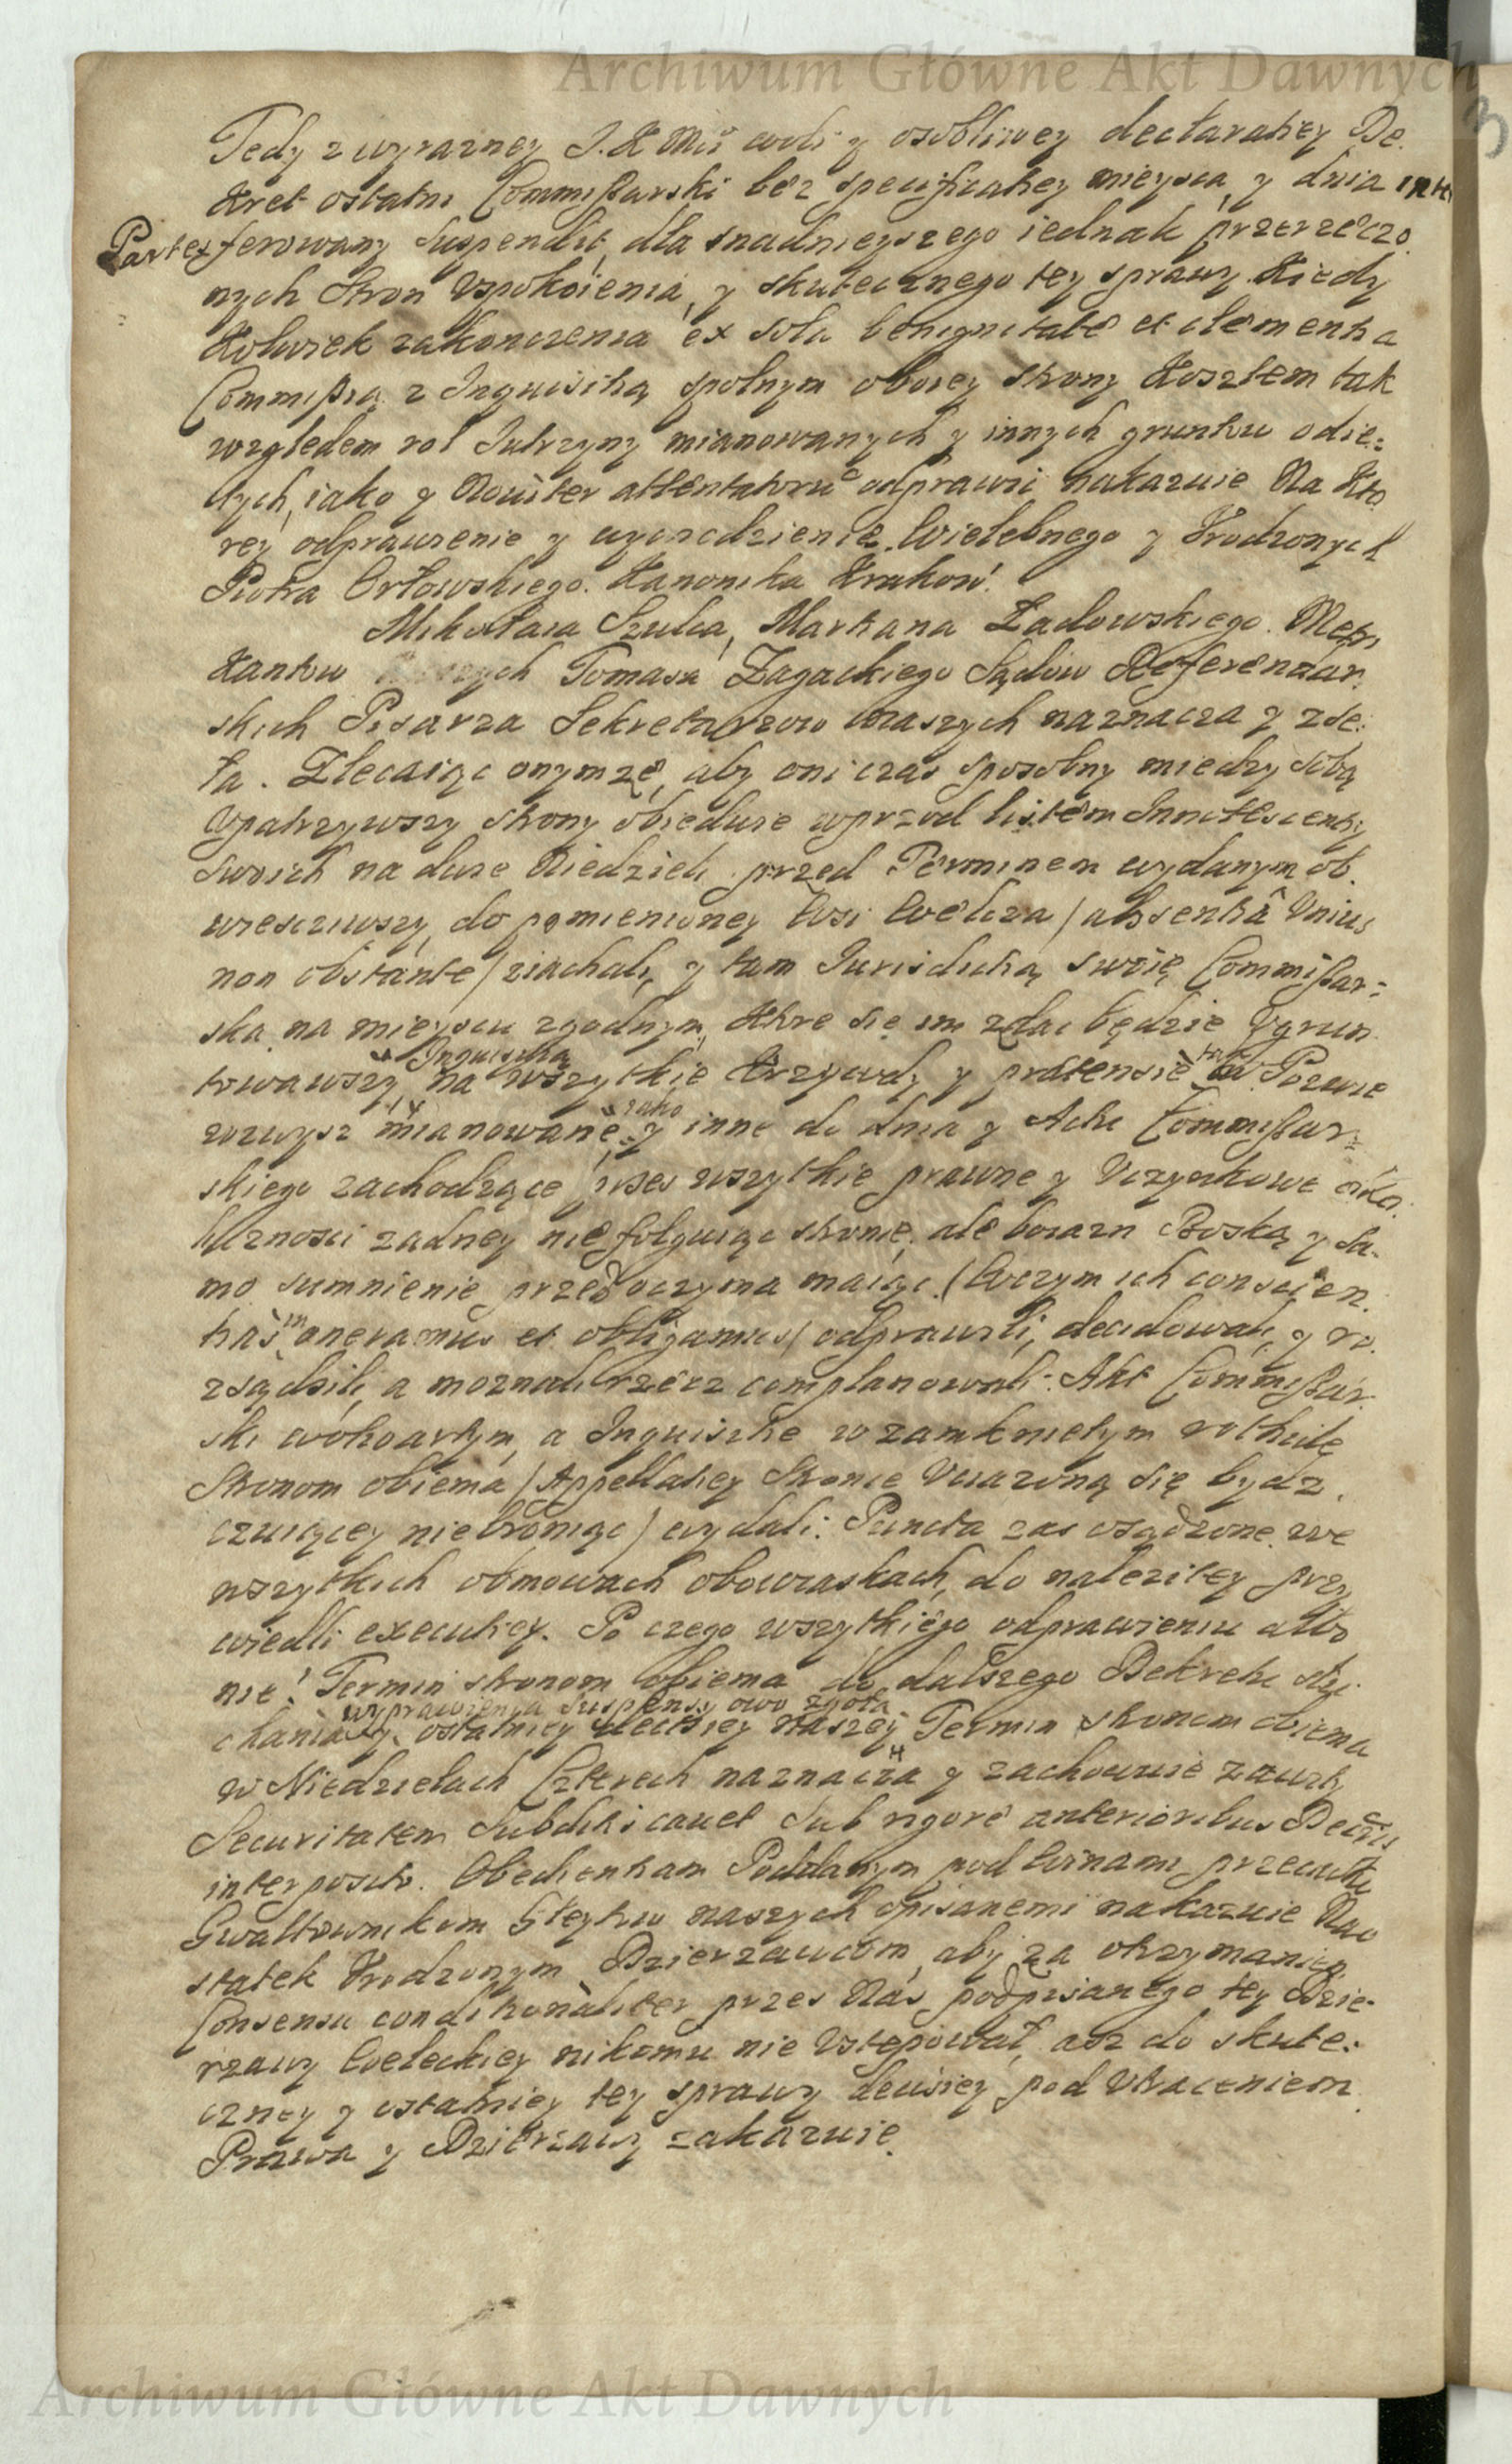 Archiwum Główne Akt Dawnych
3
Tedy z wyrazney J. K Mci woli y osobliwey declaratiey De.
kret ostatni Commissarski bez specificatiey mieysca y dnia inter
Partes ferowany suspendit, dla snadnieyszego iednak przerzeczo.
nych Stron Vspokoienia, y skutecznego tey sprawy kiedy
kolwiek zakonczenia ex sola benignitate et clementia
Commissią z Inquisitią spolnym obuey strony kosztem tak
względem rol Jutrzyny mianowanych y innych gruntow odie:
tych, iako y Noviter attentatoru odprawic nakazuie Na kto
rey odprawienie y Wielebnego y Vrodzonych
Piotra Orłowskiego. Kanonika Krakow.
Mikołaia Szulca, Marciana Ładowskiego. Metri
kantow Tomasa Zagackiego Sądow Referendar
skich Pisarza Sekretarzow Naszych naznacza y zse:
ła. Zlecaiąc onymze, aby oni czas sposobny miedzy sobą
Vpatrzywszy strony obiedwie wprzod listem Innotescentiy
swoich na dwie Niedzieli przed Terminem wydanym ob.
wiesciwszy, do pomienioney Wsi Welcza / absentia Vnius
non obstante / ziachali, y tam Iurisdictią swoię Commissar:
ską na mieyscu zgodnym, ktore się im zdac będzie Vgrun
towawszy, Inquisitią na wszytkie krzywdy y prætensie tak w Pozwie
wzwysz mianowane, iako y inne do dnia y Actu Commissar:
skiego zachodzące przes wszytkie prawne y Vczynkowe oko.
licznosci zadney nie folguiąc stronie, ale boiazn Boską y sa.
mo sumnienie przed oczyma maiąc. (Wczym ich conscien.
tias oneramus et obligamus) odprawili, decidowali y ro.
zsądzili, a moznali rzecz complanowali: Akt Commissar.
ski wotwartym, a Inquisitie w zamknietym rotkule
Stronom obiema / Appellatiey Stronie Vrazoną się bydz
czuiącey niebroniąc / wydali: Puncta zas osądzone we
wszytkich obmowach obowiaskach, do nalezitey przy
wiedli executiey. Po czego wszytkiego odprawieniu albo
nie! Termin stronom obiema do dalszego Dekretu słu.
chania y wyprawienia Suspensy owo zgoła ostatniey decisiey naszey Termin stronom obiema
w Niedzielach Czterech naznacza y zachowuie zawity
Securitatem Subditis cavet sub rigore anterioribus Decretis
interposito. Obedientiam Poddanym pod Winami przeciwko
Gwałtownikom Gleytow naszych opisanemi nakazuie Nao
statek Vrodzonym Dzierzawcom, aby za otrzymaniem
Consensu conditionaliter przes Nas podpisanego tey Dzie.
rzawy Weleckiey nikomu nie Vstępował, asz do skute:
czney y ostatniey tey sprawy decisiey pod Vtraceniem
Prawa y Dzierzawy zakazuie.
Archiwum Główne Akt Dawnych